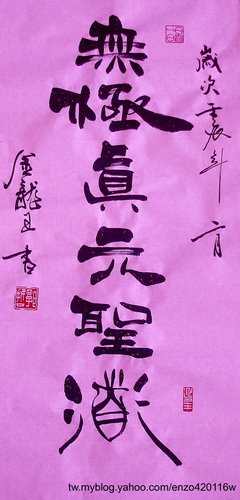 歲次壬辰年二月
無極眞元聖
金龍 書
tw.myblog.yahoo.com/enzo420116w